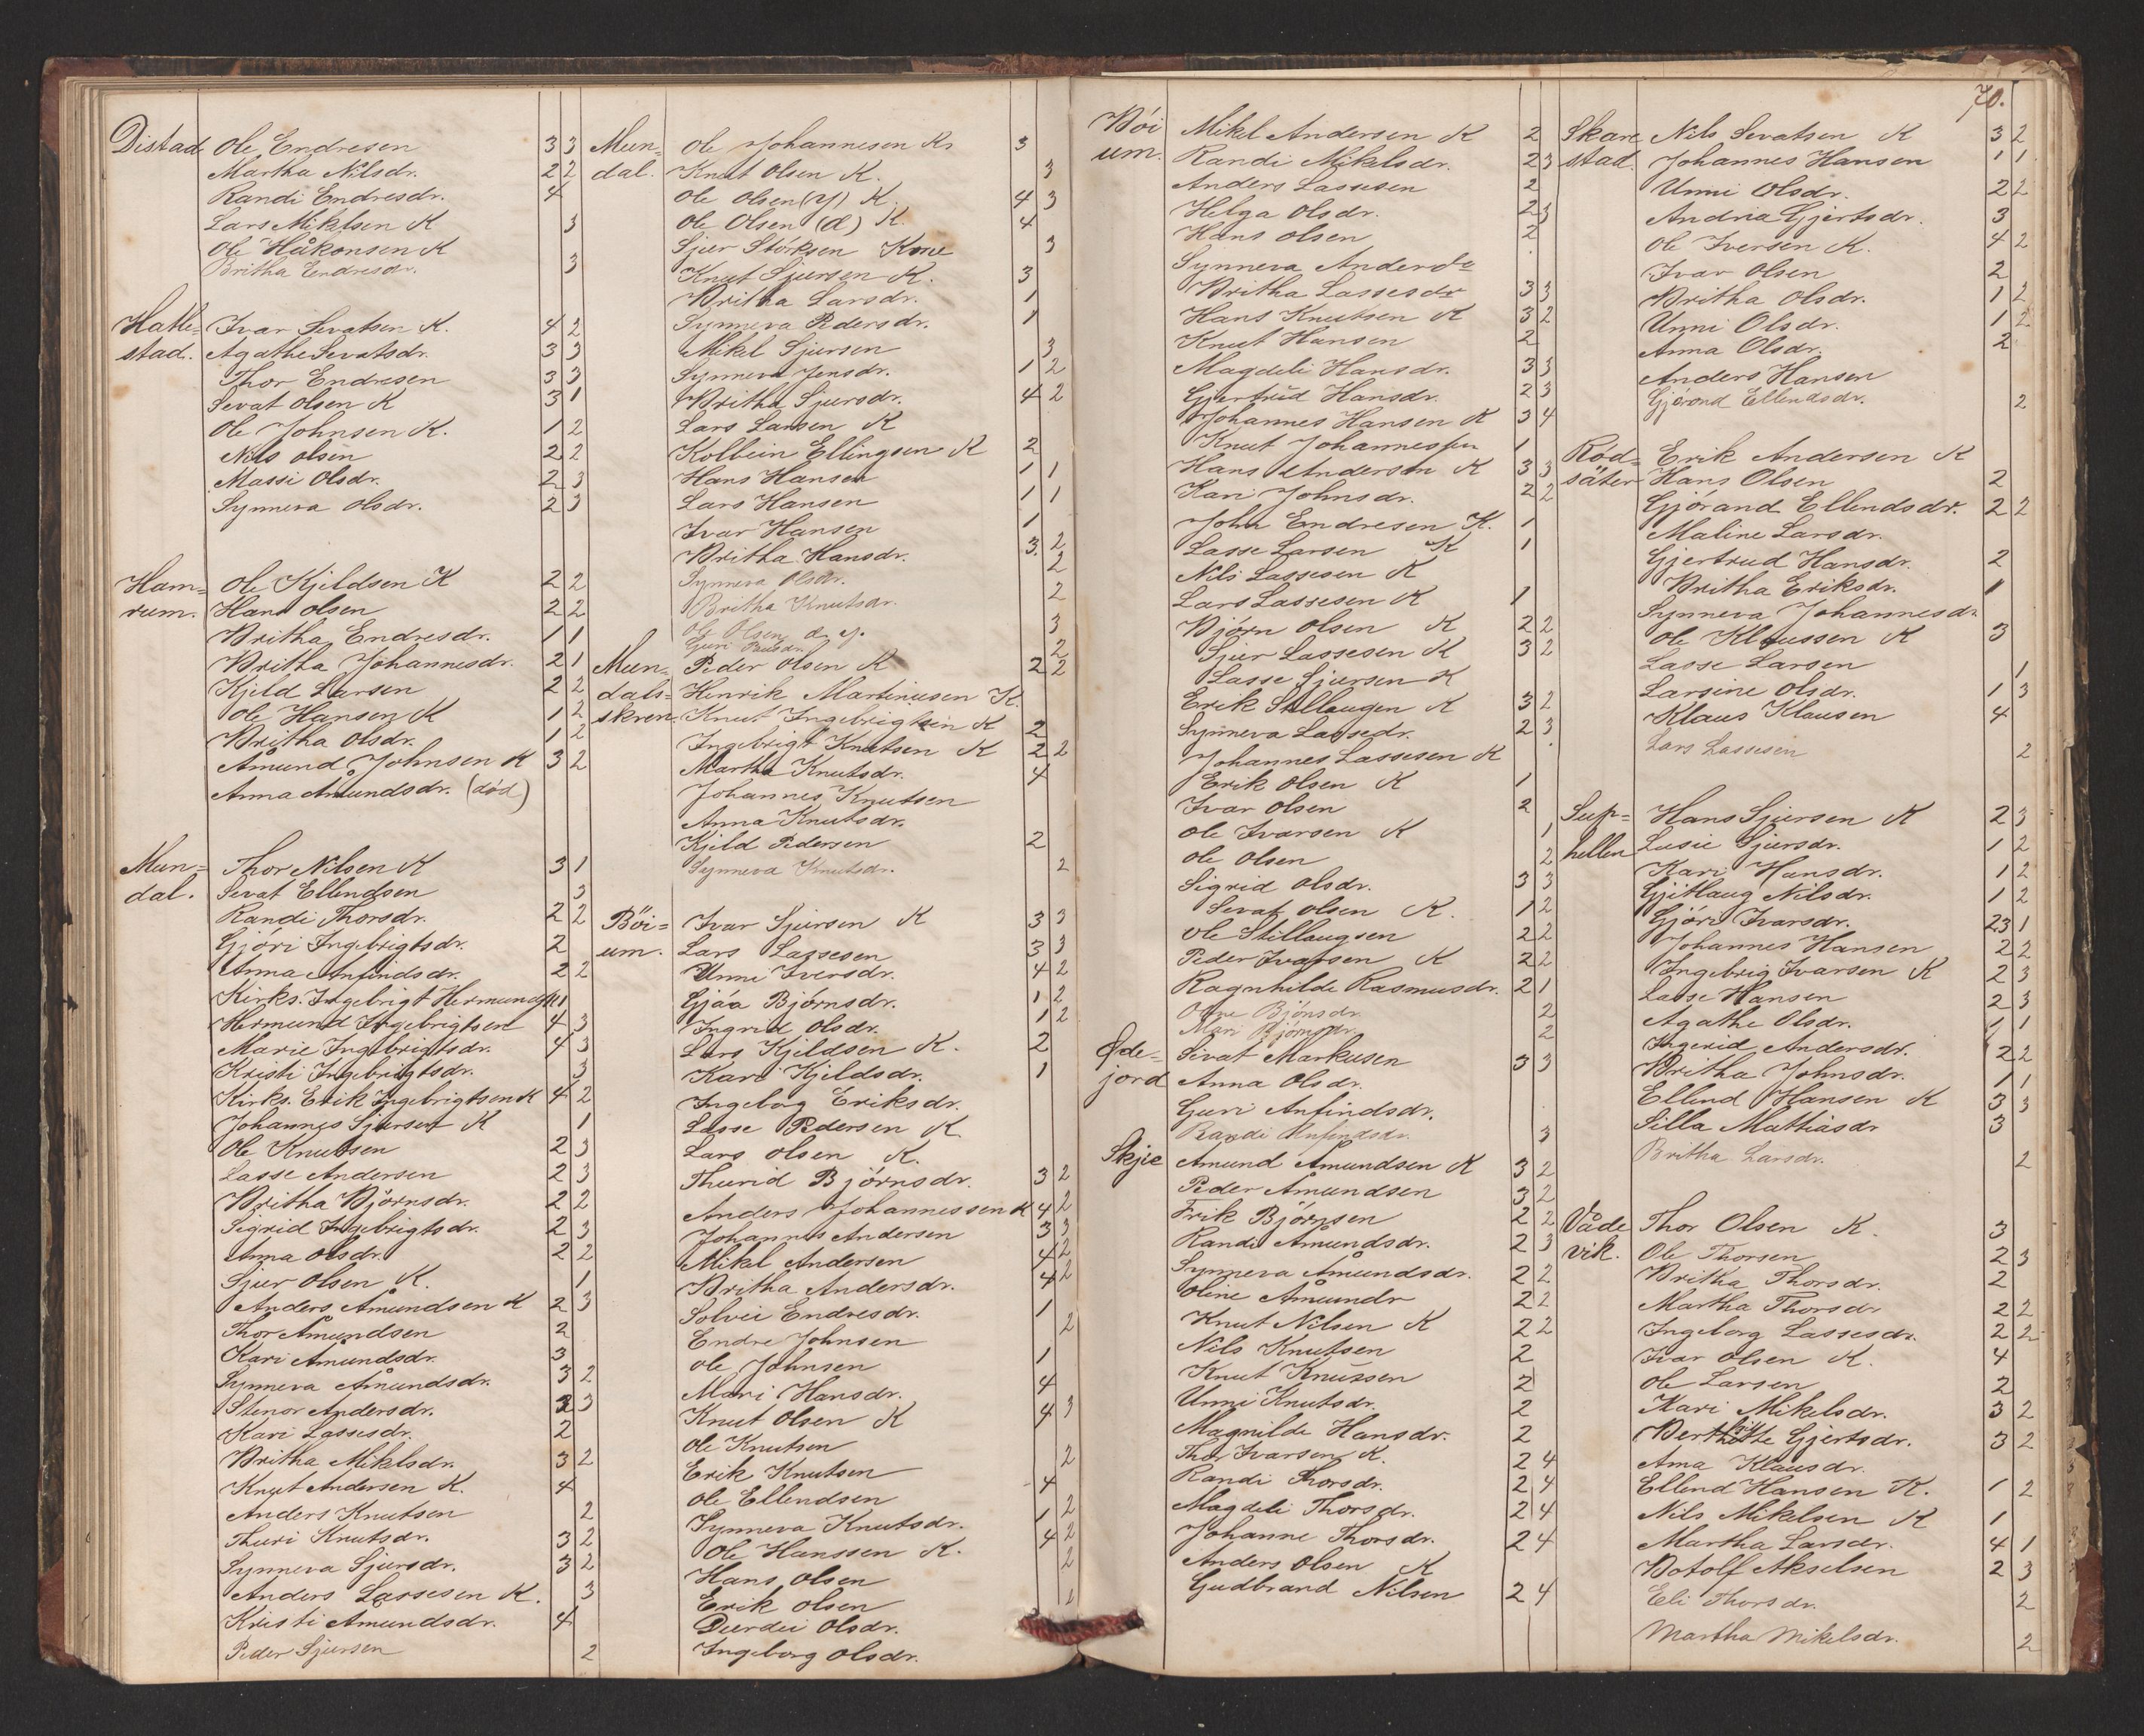 70.
Distad Ole Endresen 3 3
Martha Nilsdr. 2 2
Randi Endresdr. 4
Lars Mikelsen K 3
Ole Håkonsen K
Britha Endresdr. 3
Hatle= Ivar Sevatsen K. 4 2
stad. Agathe Sevatsdr. 3 3
Thor Endresen 3 3
Sevat Olsen K 3 1
Ole Johnsen K. 1 2
Nils Olsen 2 2
Massi Olsdr. 2 3
Synneva Olsdr. 2 3
Ham= Ole Kjeldsen K 2 2
rum. Hans Olsen 2 2
Britha Endresdr. 1 1
Britha Johannesdr. 2 1
Kjeld Larsen 2 2
Ole Hansen K 1 2
Britha Olsdr. 1 2
Åmund Johnsen K 3 2
Anna Åmundsdr. (död)
Mun= Thor Nilsen K 3 1
dal. Sevat Ellendsen 3
Randi Thorsdr. 2 2
Gjöri Ingebrigtsdr. 2
Anna Anfindsdr. 2 2
Kirks. Ingebrigt Hermundsen 1
Hermund Ingebrigtsen 4 3
Marie Ingebrigtsdr. 4 3
Kristi Ingebrigtsdr. 3
Kirks. Erik Ingebrigtsen K 4 2
Johannes Sjursen K 1
Ole Knutsen 2 3
Lasse Andersen 2 3
Britha Björnsdr. 2 2
Sigrid Ingebrigtsdr. 2 3
Anna Olsdr. 2 2
Sjur Olsen K. 1
Anders Åmundsen K 2 3
Thor Åmundsen 2
Kari Åmundsdr. 3
Synneva Åmundsdr. 3 2
Stenor Andersdr. 3 3
Kari Lassesdr. 2
Britha Mikelsdr. 3 2
Knut Andersen K. 4
Anders Knutsen 2
Thuri Knutsdr. 3 2
Synneva Sjursdr. 3 2
Anders Lassesen K. 3
Kristi Amundsdr. 4
Peder Sjursen 2
Mun= Ole Johannesen K 3
dal. Knut Olsen K. 3
Ole Olsen (y) K. 4 3
Ole Olsen (d) K. 4
Sjur Storksen Kone 3
Knut Sjursen K. 3
Britha Larsdr. 1
Synneva Pedersdr. 1
Mikel Sjursen 3
Synneva Jensdr. 1 2
Britha Sjursdr. 4 2
Lars Larsen K
Kolbein Ellingsen K 2
Hans Hansen 1 1
Lars Hansen 1 1
Ivar Hansen 1
Britha Hansdr. 3. 2
Synneva Olsdr. 2
Britha Knutsdr. 2
Ole Olsen d. y. 3
Guri 2
Mun= Peder Olsen K 2 2
dals= Henrik Martinusen K.
skren. Knut Ingebrigtsen K 2
Ingebrigt Knutsen K 2 2
Martha Knutsdr. 4
Johannes Knutsen
Anna Knutsdr.
Kjeld Pedersen 2
Synneva Knutsdr. 2
Böi= Ivar Sjursen K 3 3
um. Lars Lassesen 3 3
Unni Iversdr. 4 2
Gjöa Björnsdr. 1 2
Ingrid Olsdr. 1 2
Lars Kjeldsen K. 2
Kari Kjeldsdr. 1
Ingeborg Eriksdr.
Lasse Pedersen K.
Lars Olsen K.
Thurid Björnsdr. 3 2
Anders Johannessen K 4 2
Johannes Andersen 3 3
Mikel Andersen 4 2
Britha Andersdr. 4 2
Solvei Endresdr. 1
Endre Johnsen 2
Ole Johnsen 1
Mari Hansdr. 4
Knut Olsen K 4 3
Ole Knutsen
Erik Knutsen 2
Ole Ellendsen 4
Synneva Knutsdr. 1 2
Ole Hanssen K. 4 2
Hans Olsen 2
Erik Olsen 1
Durdei Olsdr.
Ingeborg Olsdr.
Böi Mikel Andersen K 2
um. Randi Mikelsdr. 2 3
Anders Lassesen 2
Helga Olsdr. 2 3
Hans Olsen 2
Synneva Andersdr
Britha Lassesdr 3 3
Hans Knutsen K 3 2
Knut Hansen 2
Magdeli Hansdr. 3 3
Gjertrud Hansdr. 2 3
Johannes Hansen K 3 4
Knut Johannessen 1
Hans Andersen K 3 3
Kari Johnsdr. 2 2
John Endresen K. 1
Lasse Larsen K 1
Nils Lassesen K
Lars Lassesen K 1
Björn Olsen K 2 2
Sjur Lassesen K 3 2
Lasse Sjursen K
Erik Stillaugen K 3 2
Synneva Lassedr. 2 3
Johannes Lassesen K
Erik Olsen K 1
Ivar Olsen 2
Ole Ivarsen K 1
Ole Olsen 2
Sigrid Olsdr. 3 3
Sevat Olsen K. 1 2
Ole Stillaugsen 2 2
Peder Ivarsen K 2 2
Ragnhilde Rasmusdr. 2 1
Oline Björnsdr 2
Mari Björnsdr. 2
Öde= Sivat Markusen 3 3
jord Anna Olsdr.
Guri Anfindsdr.
Randi Anfindsdr. 3
Skjee Amund Amundsen K 3 2
Peder Amundsen 3 2
Erik Björnsen 2 2
Randi Amundsdr. 2 3
Synneva Amundsdr. 2 2
Oline Åmundr 2 2
Knut Nilsen K 2 2
Nils Knutsen 2
Knut Knutsen 2
Unni Knutsdr. 2
Magnilde Hansdr. 2
Thor Ivarsen K. 2 4
Randi Thorsdr. 2 4
Magdeli Thorsdr. 2 4
Johanne Thorsdr. 2 4
Anders Olsen K
Gudbrand Nilsen 2 4
Skare Nils Sevatsen K 3 2
stad. Johannes Hansen 1 1
Unni Olsdr. 2 2
Andria Gjertsdr. 3
Ole Iversen K. 4 2
Ivar Olsen 2
Britha Olsdr. 1 2
Unni Olsdr. 1 2
Anna Olsdr. 2
Anders Hansen
Gjörond Ellendsdr. 2
Röd= Erik Andersen K
säter Hans Olsen 2
Gjörand Ellendsdr. 2 2
Maline Larsdr.
Gjertrud Hansdr. 2
Britha Eriksdr. 1
Synneva Johannesdr
Ole Klaussen K 3
Lasse Larsen 1
Larsine Olsdr. 1 3
Klaus Klausen 4
Lars Lassesen 2
Sup= Hans Sjursen K 2 3
hellen Lusie Sjursdr. 1 2
Kari Hansdr. 1 2
Gjitlaug Nilsdr. 1 2
Gjöri Ivarsdr. 23 1
Johannes Hansen 2 2
Ingebrig Ivarsen K 2 3
Lasse Hansen 2 3
Agathe Olsdr. 1 1
Ingerid Andersdr. 2 2
Britha Johnsdr. 1 1
Ellend Hansen K 3 3
Silla Mathiasdr 3
Britha Larsdr. 2
Våde Thor Olsen K. 3
vik. Ole Thorsen 2 3
Britha Thorsdr. 2
Martha Thorsdr 2 2
Ingeborg Lassesdr. 2 2
Ivar Olsen K. 4
Ole Larsen 2
Kari Mikelsdr. 3 2
Gjertsdr. 3 2
Anna Klausdr.
Ellend Hansen K. 1 2
Nils Mikelsen K 1
Martha Larsdr. 4 1
Botolf Akselsen 2 3
Eli Thorsdr. 2
Martha Mikelsdr. 2